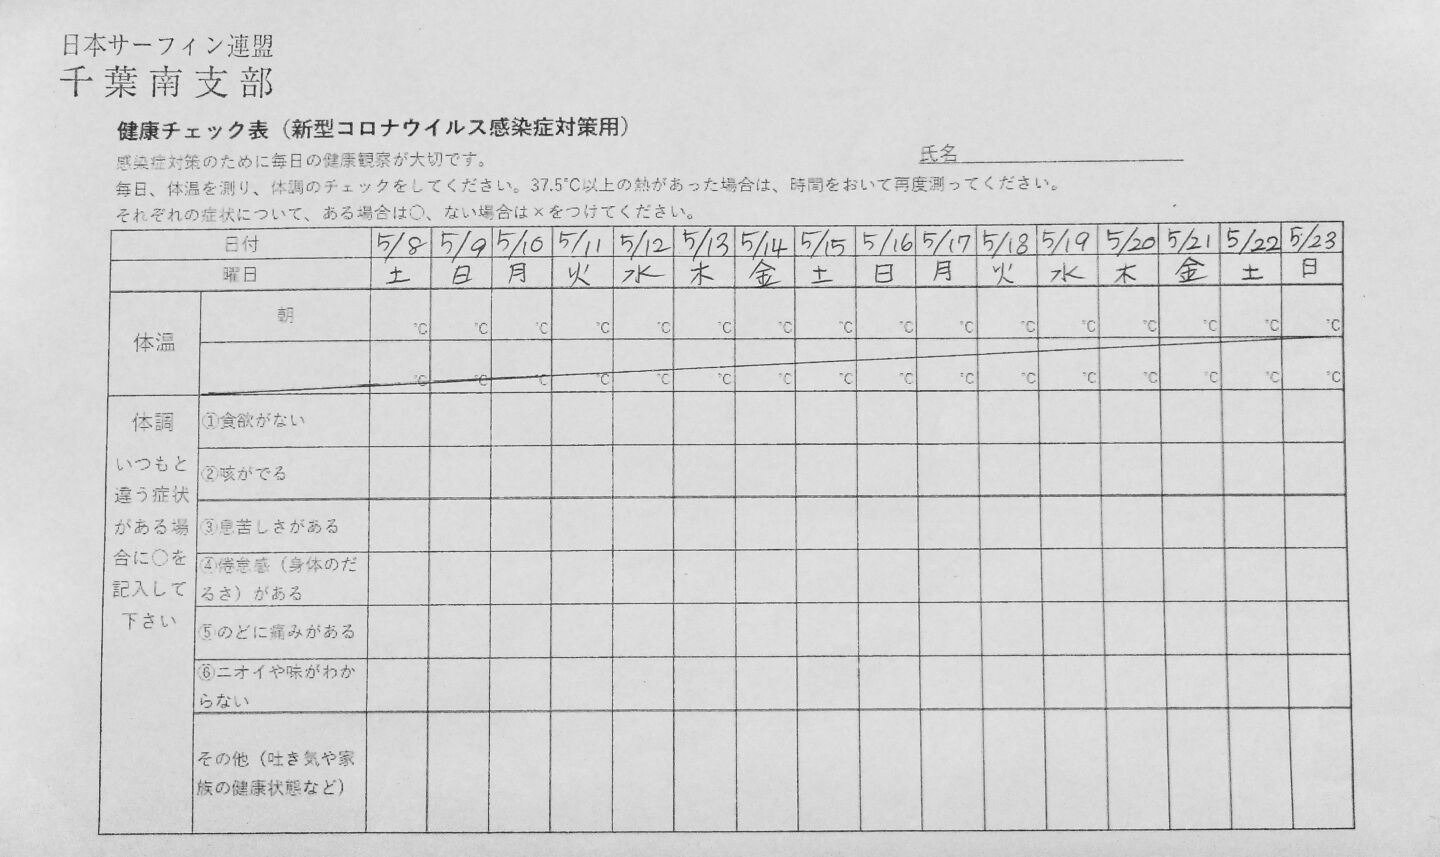 日本サーフィン連盟
千葉南支部
健康チェック表（新型コロナウイルス感染症対策用）
感染症対策のために毎日の健康観察が大切です。
氏名
毎日、体温を測り、体調のチェックをしてください。37.5℃以上の熱があった場合は、時間をおいて再度測ってください。
それぞれの症状について、ある場合は〇、ない場合は×をつけてください。
日付 5/8 5/9 5/10 5/11 5/12 5/13 5/14 5/15 5/16 5/17 5/18 5/19 5/20 5/21 5/22 5/23
曜日 土 日 月 火 水 木 金 土 日 月 火 水 木 金 土 日
体温
朝
℃ ℃ ℃ ℃ ℃ ℃ ℃ ℃ ℃ ℃ ℃ ℃ ℃ ℃ ℃ ℃
℃ ℃ ℃ ℃ ℃ ℃ ℃ ℃ ℃ ℃ ℃ ℃ ℃ ℃ ℃ ℃
体調
いつもと
違う症状
がある場
合に〇を
記入して
下さい
①食欲がない
②咳がでる
③息苦しさがある
④倦怠感（身体のだ
るさ）がある
⑤のどに痛みがある
⑥ニオイや味がわか
らない
その他（吐き気や家
族の健康状態など）